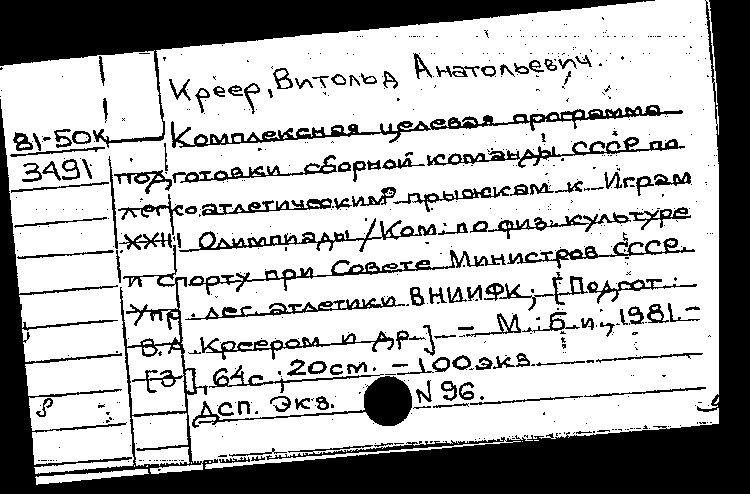 Креер, Витольд Анатольевич.
81-50К
3491
Комплексная целевая программа
подготовки сборной команды СССР по
легкоатлетическим прыжкам к Играм
XXIII Олимпиады / Ком. по физ. культуре
и спорту при Совете Министров СССР.
Упр. лег. атлетики ВНИИФК; [Подгот.:
В.А. Креером и др.] - М.: Б.и., 1981. -
[3], 64с.; 20см. - 100экз.
ДСП. Экз. N 96.